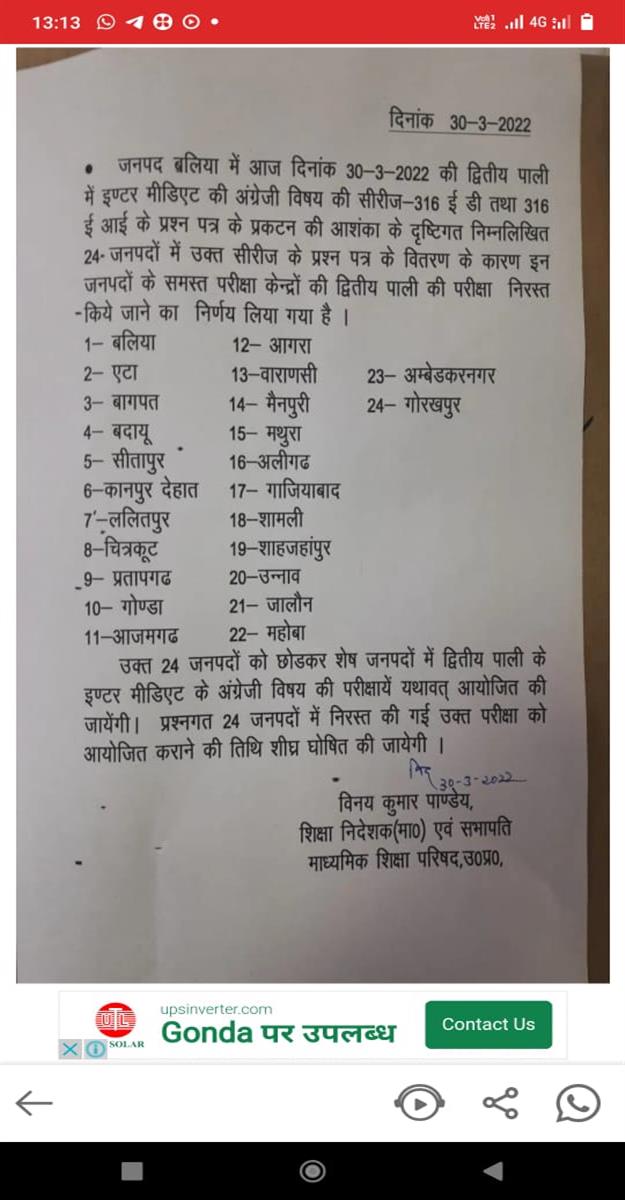 13:13
Vo)) 1 LTE2 4G
दिनांक 30-3-2022
• जनपद बलिया में आज दिनांक 30-3-2022 की द्वितीय पाली
में इण्टर मीडिएट की अंग्रेजी विषय की सीरीज-316 ई डी तथा 316
ई आई के प्रश्न पत्र के प्रकटन की आशंका के दृष्टिगत निम्नलिखित
24- जनपदों में उक्त सीरीज के प्रश्न पत्र के वितरण के कारण इन
जनपदों के समस्त परीक्षा केन्द्रों की द्वितीय पाली की परीक्षा निरस्त
-किये जाने का निर्णय लिया गया है ।
1- बलिया 12- आगरा
2- एटा 13-वाराणसी 23- अम्बेडकरनगर
3- बागपत 14- मैनपुरी 24- गोरखपुर
4- बदायू 15- मथुरा
5- सीतापुर 16-अलीगढ
6-कानपुर देहात 17- गाजियाबाद
7-ललितपुर 18-शामली
8-चित्रकूट 19-शाहजहांपुर
9- प्रतापगढ 20-उन्नाव
10- गोण्डा 21- जालौन
11-आजमगढ 22- महोबा
उक्त 24 जनपदों को छोडकर शेष जनपदों में द्वितीय पाली के
इण्टर मीडिएट के अंग्रेजी विषय की परीक्षायें यथावत् आयोजित की
जायेंगी। प्रश्नगत 24 जनपदों में निरस्त की गई उक्त परीक्षा को
आयोजित कराने की तिथि शीघ्र घोषित की जायेगी ।
30-3-2022
विनय कुमार पाण्डेय,
शिक्षा निदेशक(मा0) एवं सभापति
माध्यमिक शिक्षा परिषद,उ0प्र0,
UTL SOLAR
upsinverter.com
Gonda पर उपलब्ध
Contact Us